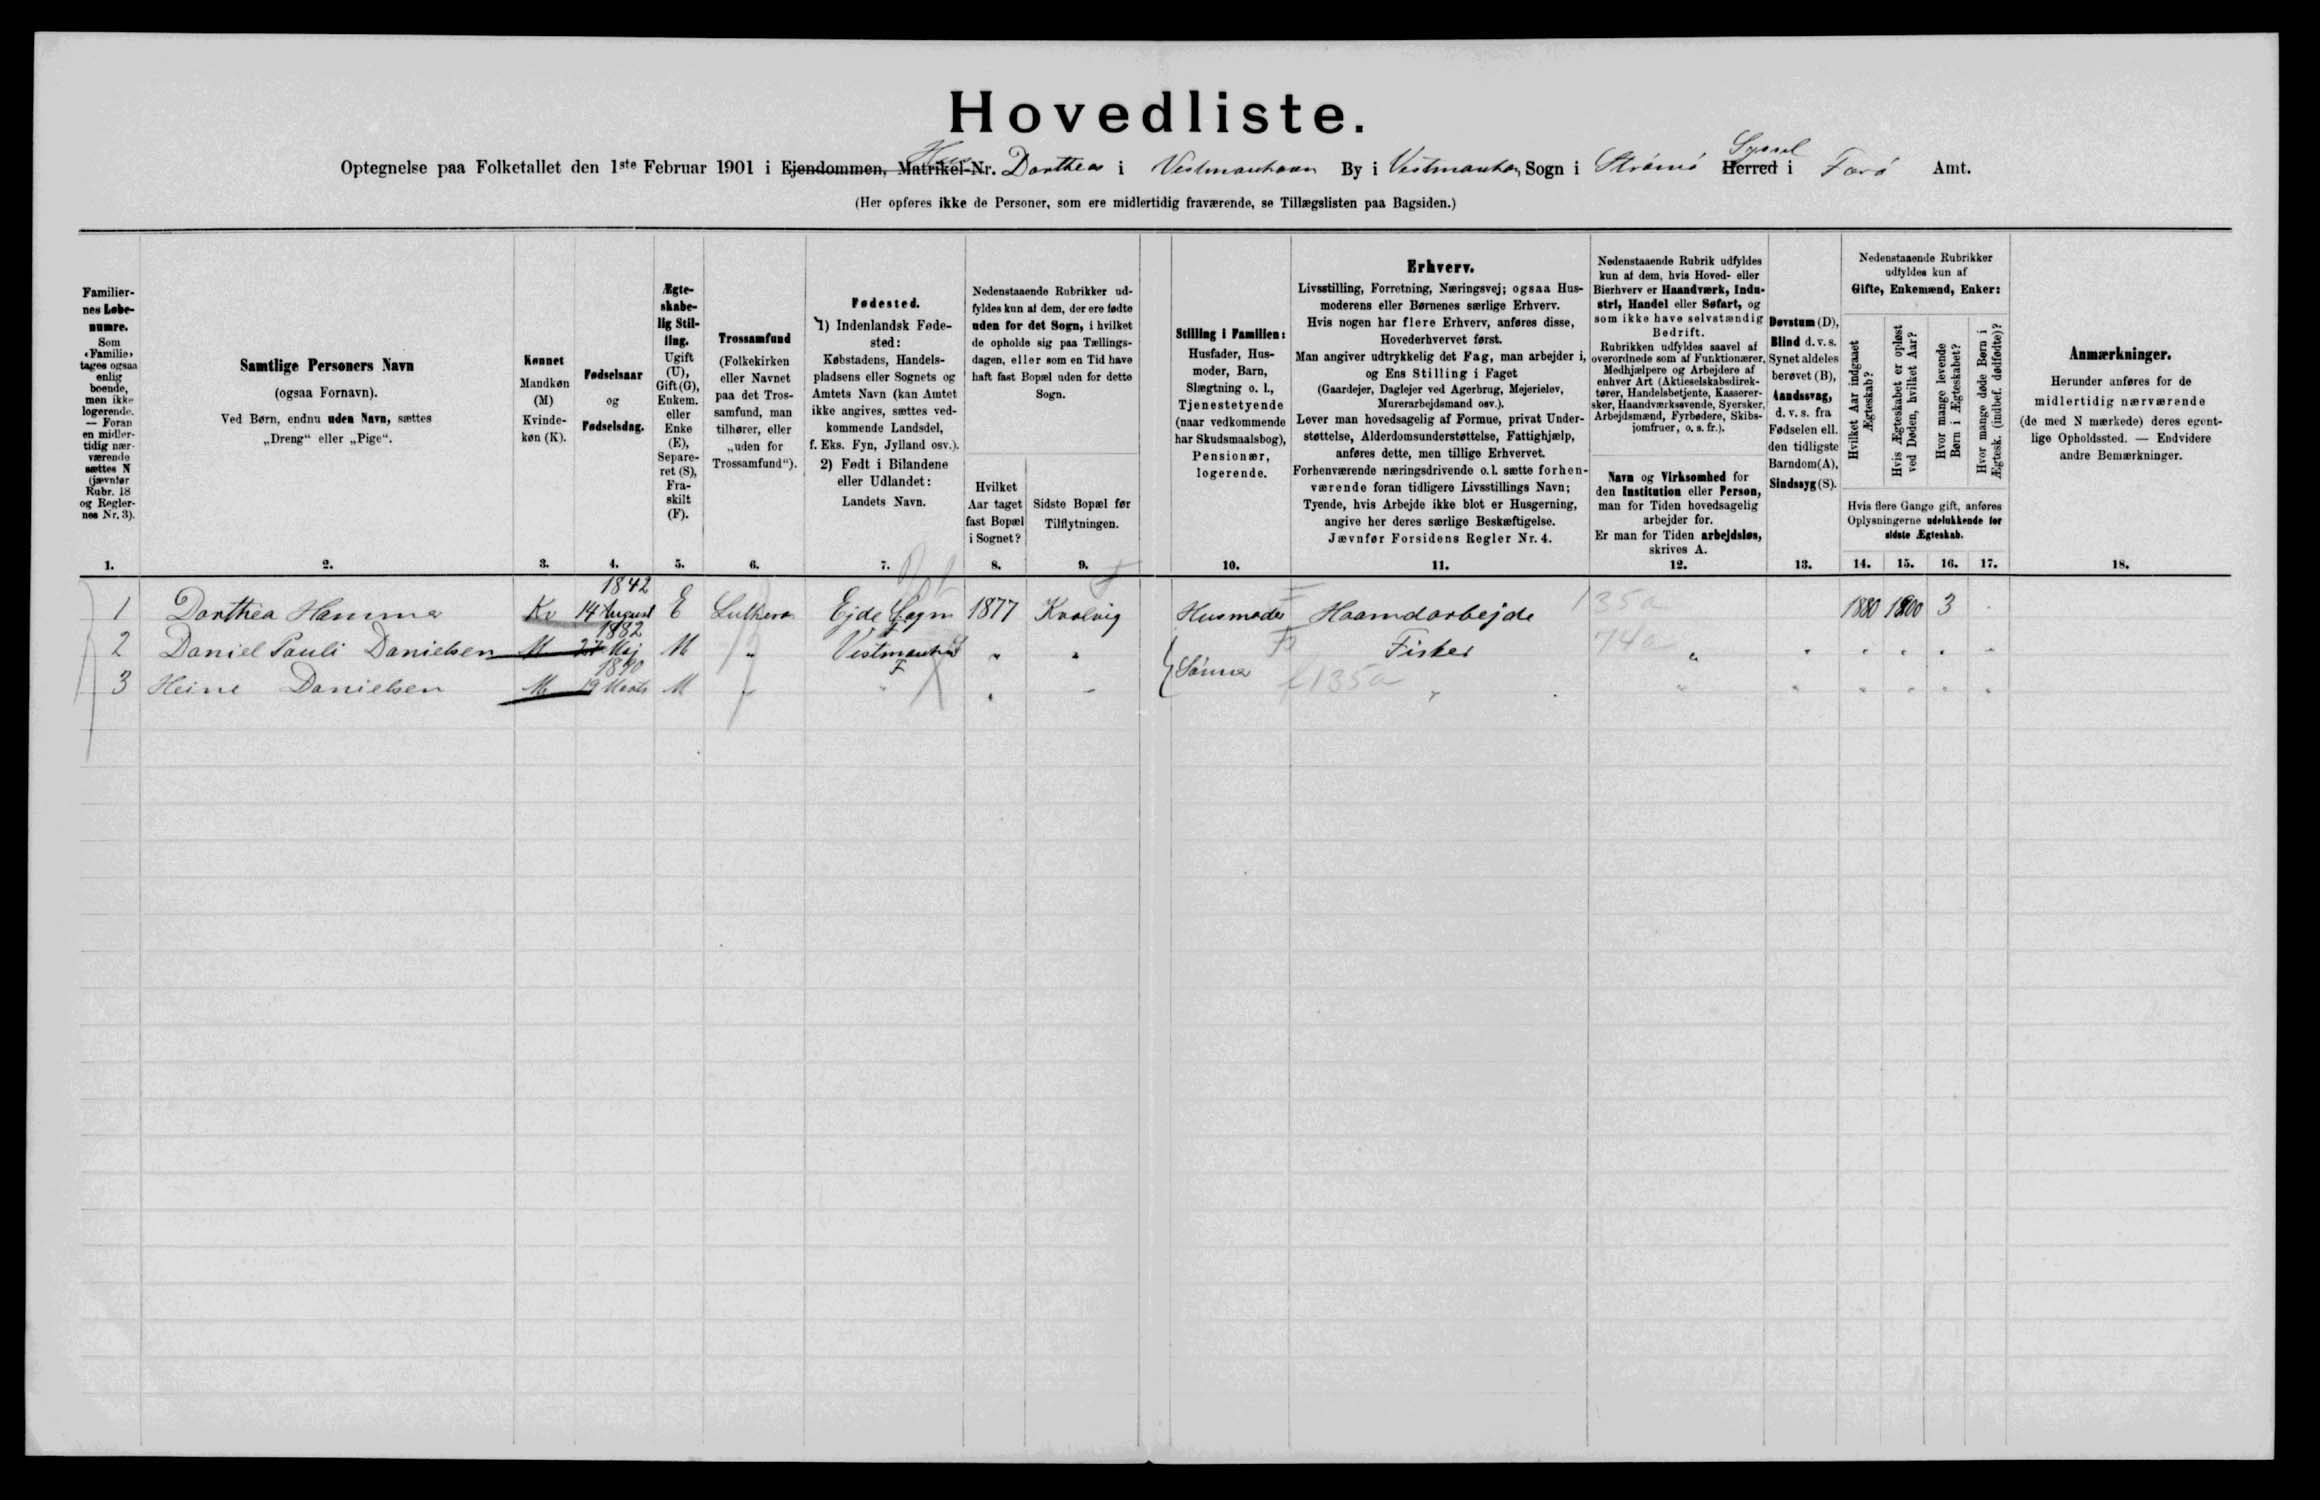 Hovedliste.
Optegnelse paa Folketallet den 1ste Februar 1901 i Ejendommen, Matrikel-Nr. Hus Dortheas i Vestmanhavn By i Vestmanha, Sogn i Strömö Herred Syssel i Farö Amt.
(Her opføres ikke de Personer, som ere midlertidig fraværende, se Tillægslisten paa Bagsiden.)
Familier-
nes Løbe-
numre.
Som
«Familie»
tages ogsaa
enlig
boende,
men ikke
logerende.
— Foran
en midler-
tidig nær-
værende
sættes N
(jævnfør
Rubr. 18
og Regler-
nes Nr. 3).
1.
Samtlige Personers Navn
(ogsaa Fornavn).
Ved Børn, endnu uden Navn, sættes
„Dreng“ eller „Pige“.
2.
Kønnet
Mandkøn
(M)
Kvinde-
køn (K).
3.
Fødselsaar
og
Fødselsdag.
4.
Ægte-
skabe-
lig Stil-
ling.
Ugift
(U),
Gift (G),
Enkem.
eller
Enke
(E),
Separe-
ret (S),
Fra-
skilt
(F).
5.
Trossamfund
(Folkekirken
eller Navnet
paa det Tros-
samfund, man
tilhører, eller
„uden for
Trossamfund“).
6.
Fødested.
1) Indenlandsk Føde-
sted:
Købstadens, Handels-
pladsens eller Sognets og
Amtets Navn (kan Amtet
ikke angives, sættes ved-
kommende Landsdel,
f. Eks. Fyn, Jylland osv.).
2) Født i Bilandene
eller Udlandet:
Landets Navn.
7.
Nedenstaaende Rubrikker ud-
fyldes kun af dem, der ere fødte
uden for det Sogn, i hvilket
de opholde sig paa Tællings-
dagen, eller som en Tid have
haft fast Bopæl uden for dette
Sogn.
Hvilket
Aar taget
fast Bopæl
i Sognet?
8.
Sidste Bopæl før
Tilflytningen.
9.
Stilling i Familien:
Husfader, Hus-
moder, Barn,
Slægtning o. l.,
Tjenestetyende
(naar vedkommende
har Skudsmaalsbog),
Pensionær,
logerende.
10.
Erhverv.
Livsstilling, Forretning, Næringsvej; ogsaa Hus-
moderens eller Børnenes særlige Erhverv.
Hvis nogen har flere Erhverv, anføres disse,
Hovederhvervet først.
Man angiver udtrykkelig det Fag, man arbejder i,
og Ens Stilling i Faget
(Gaardejer, Daglejer ved Agerbrug, Mejerielev,
Murerarbejdsmand osv.).
Lever man hovedsagelig af Formue, privat Under-
støttelse, Alderdomsunderstøttelse, Fattighjælp,
anføres dette, men tillige Erhvervet.
Forhenværende næringsdrivende o. l. sætte forhen-
værende foran tidligere Livsstillings Navn;
Tyende, hvis Arbejde ikke blot er Husgerning,
angive her deres særlige Beskæftigelse.
Jævnfør Forsidens Regler Nr. 4.
11.
Nedenstaaende Rubrik udfyldes
kun af dem, hvis Hoved- eller
Bierhverv er Haandværk, Indu-
stri, Handel eller Søfart, og
som ikke have selvstændig
Bedrift.
Rubrikken udfyldes saavel af
overordnede som af Funktionærer,
Medhjælpere og Arbejdere af
enhver Art (Aktieselskabsdirek-
tører, Handelsbetjente, Kasserer-
sker, Haandværkssvende, Syersker,
Arbejdsmænd, Fyrbødere, Skibs-
jomfruer, o. s. fr.).
Navn og Virksomhed for
den Institution eller Person,
man for Tiden hovedsagelig
arbejder for.
Er man for Tiden arbejdsløs,
skrives A.
12.
Døvstum (D),
Blind d. v. s.
Synet aldeles
berøvet (B),
Aandssvag,
d. v. s. fra
Fødselen ell.
den tidligste
Barndom (A),
Sindssyg (S).
13.
Nedenstaaende Rubrikker
udfyldes kun af
Gifte, Enkemænd, Enker:
Hvilket Aar indgaaet
Ægteskab?
Hvis Ægteskabet er opløst
ved Døden, hvilket Aar?
Hvor mange levende
Børn i Ægteskabet?
Hvor mange døde Børn i
Ægtesk. (indbef. dødfødte)?
Hvis flere Gange gift, anføres
Oplysningerne udelukkende for
sidste Ægteskab.
14. 15. 16. 17.
Anmærkninger.
Herunder anføres for de
midlertidig nærværende
(de med N mærkede) deres egent-
lige Opholdssted. — Endvidere
andre Bemærkninger.
18.
1 Dorthea Hammer Kv 1842 14 August E Luthera Ejde Sogn 1877 Kvalvig Husmoder Haandarbejde 135a 1880 1900 3
2 Daniel Pauli Danielsen M 1882 27 Maj M „ Vestmanha „ „ Sønner Fisker 74a „
3 Heine Danielsen M 1890 19 Marts M „ F „ „ „ 135a „ „